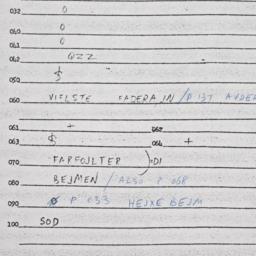 032 0
040 0
041 0
042 QZZ
050 $
060 VIELSTE FADERA IN / P 137
061 + 062
063 $ 064 +
070 FARFOJLTER DI
080 BEJMEN / ALSO P 068
090 P 033 HEJXE BEJM
100 SOD